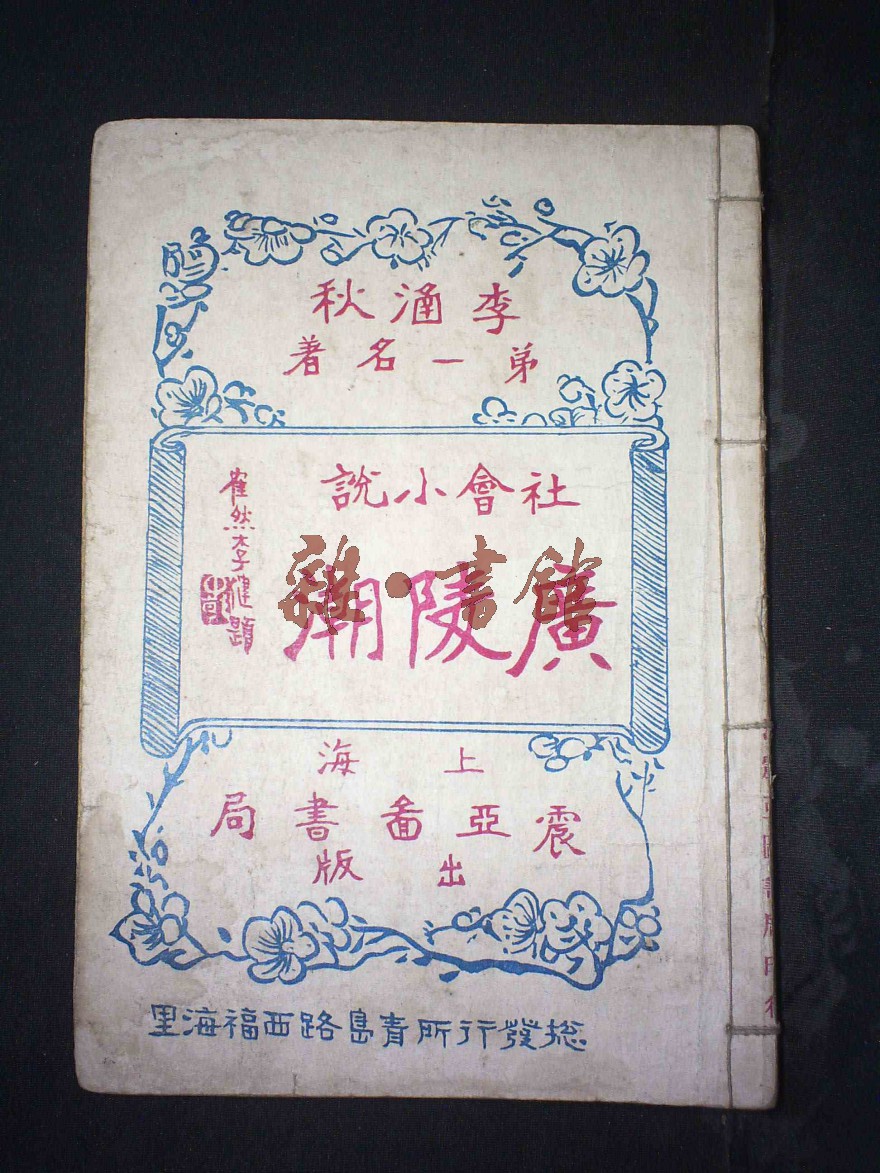 李涵秋
弟一名著
社會小說
廣陵潮
崔然李健題
上海
震亞啚書局
出版
總發行所青島路西福海里
雜·書館